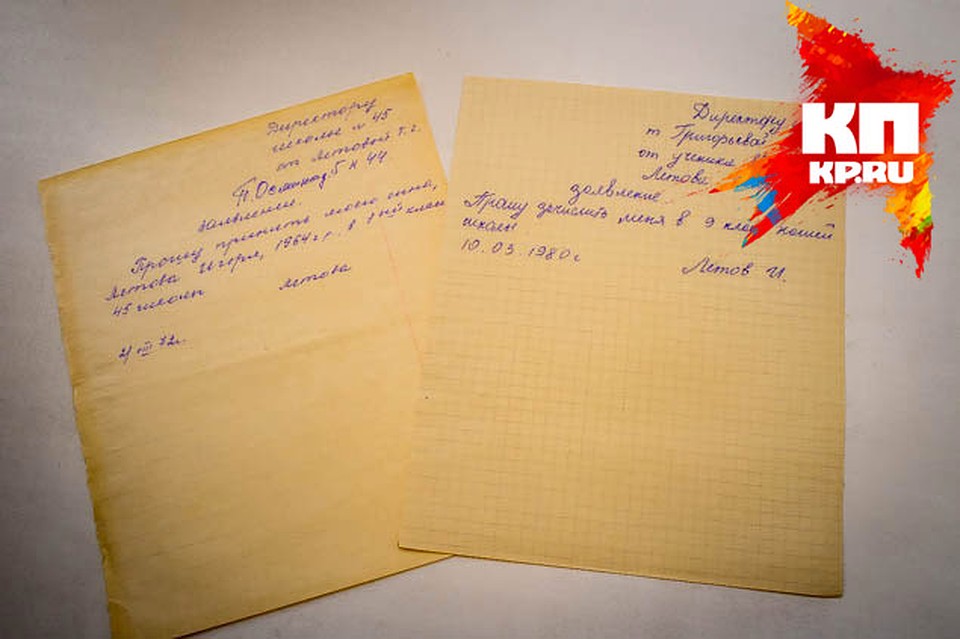 Директору
школы № 45
от Летовой Т.Г.
П. Осминина 5 К 44
Заявление.
Прошу принять моего сына,
Летова Игоря, 1964 г.р. в 1ый класс
45 школы
Летова
2/VIII 72г.
Директору
т Григорьевой
от ученика
Летова
заявление
Прошу зачислить меня в 9 класс нашей
школы
10.03.1980г
Летов И.
КП
KP.RU